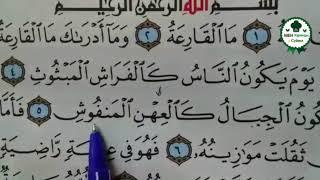 بِسْمِ اللَّهِ الرَّحْمَٰنِ الرَّحِيمِ
١ مَا الْقَارِعَةُ ٢ وَمَا أَدْرَىٰكَ مَا الْقَارِعَةُ
يَوْمَ يَكُونُ النَّاسُ كَالْفَرَاشِ الْمَبْثُوثِ ٤
كُونُ الْجِبَالُ كَالْعِهْنِ الْمَنْفُوشِ ٥ فَأَمَّا
ثَقُلَتْ مَوَازِينُهُ ٦ فَهُوَ فِي عِيشَةٍ رَّاضِيَةٍ